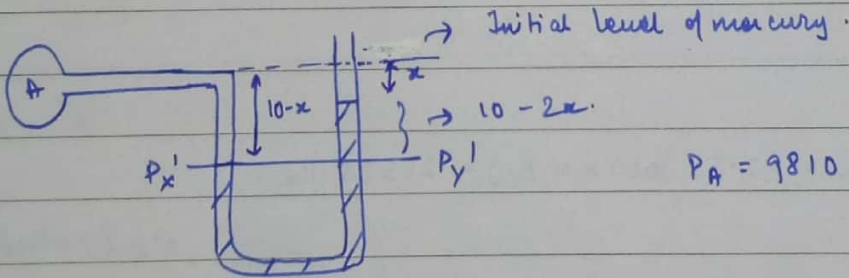 → Initial level of mercury.
A
x
10-x
→ 10 - 2x.
Px' Py'
PA = 9810